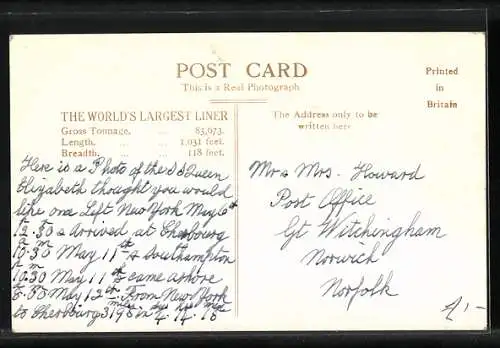 POST CARD
This is a Real Photograph
Printed
in
Britain
THE WORLD'S LARGEST LINER
Gross Tonnage. ... 83,973.
Length. ... ... 1,031 feet.
Breadth. ... ... 118 feet.
The Address only to be
written here
Here is a Photo of the SS Queen
Elizabeth thought you would
like one Left New York May 6th
12.30 Arrived at Cherbourg
10.30 May 11th Southampton
10.30 May 11th came ashore
May 12th. From New York
to Cherbourg 3198 in 4.
Mr & Mrs. Howard
Post Office
Gt Witchingham
Norwich
Norfolk
4,-